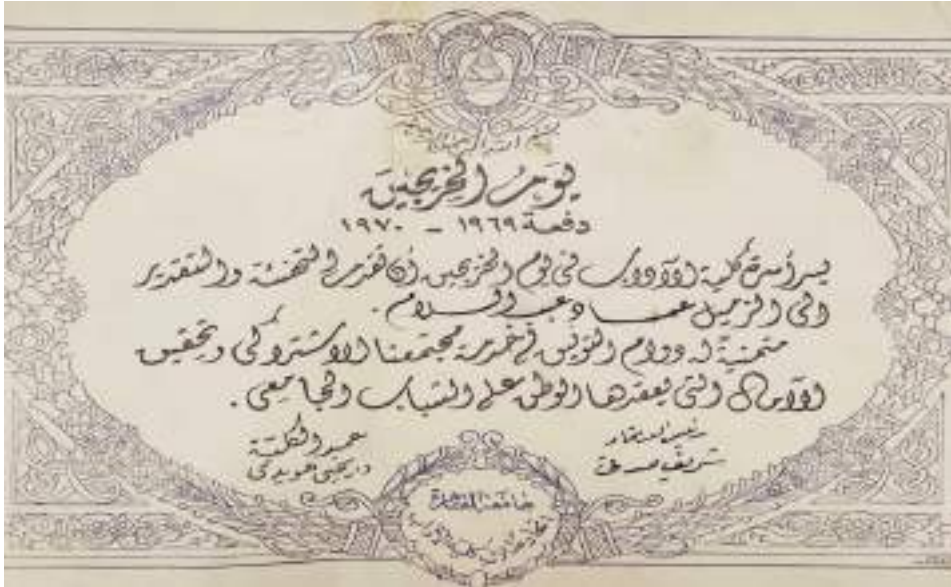 بسم الله الرحمن الرحيم
يوم الخريجين
دفعة ١٩٦٩ - ١٩٧٠
يسر أسرة كلية الآداب في يوم الخريجين أن تقدم التهنئة والتقدير
الى الزميل عماد عبد السلام .
متمنية له دوام التوفيق في خدمة مجتمعنا الاشتراكى وتحقيق
الآمال التى يعقدها الوطن على الشباب الجامعى .
شريف
عميد الكلية
د. يحيى هويدى
جامعة القاهرة